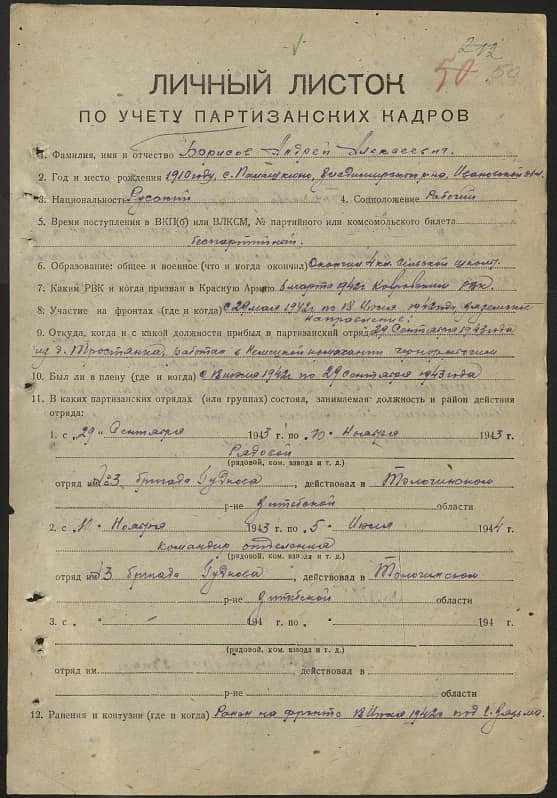 212
50 50
ЛИЧНЫЙ ЛИСТОК
ПО УЧЕТУ ПАРТИЗАНСКИХ КАДРОВ
1. Фамилия, имя и отчество Борисов Андрей Алексеевич.
2. Год и место рождения 1910 году, с. Владимирского р-на, Ивановской обл.
3. Национальность Русский 4. Соцположение Рабочий
5. Время поступления в ВКП(б) или ВЛКСМ, № партийного или комсомольского билета
Беспартийный.
6. Образование: общее и военное (что и когда окончил) Окончил 4 кл. сельской школы.
7. Каким РВК и когда призван в Красную Армию 6 марта 1942г Ковровским РВК.
8. Участие на фронтах (где и когда) С 29 мая 1942г по 18 Июля 1942 года вяземское
направление.
9. Откуда, когда и с какой должности прибыл в партизанский отряд 29 Сентября 1943 года
из д. Тростянка, работал в Немецкой чернорабочим
10. Был ли в плену (где и когда) с 18 июля 1942г по 29 сентября 1943 года
11. В каких партизанских отрядах (или группах) состоял, занимаемая должность и район действия
отряда:
1. с „29“ Сентября 1943 г. по „10“ Ноября 1943 г.
Рядовой
(рядовой, ком. взвода и т. д.)
отряд им. №3 бригада Гудкова, действовал в Толочинском
р-не Витебской области
2. с „11“ Ноября 1943 г. по „5“ Июля 1944 г.
Командир отделения
(рядовой, ком. взвода и т. д.)
отряд им. 3 бригада Гудкова, действовал в Толочинском
р-не Витебской области
3. с „ “ 194 г. по „ “ 194 г.
(рядовой, ком. взвода и т. д.)
отряд им. , действовал в
р-не области
12. Ранения и контузии (где и когда) Ранен на фронте 18 Июля 1942г под г. Вязьма.